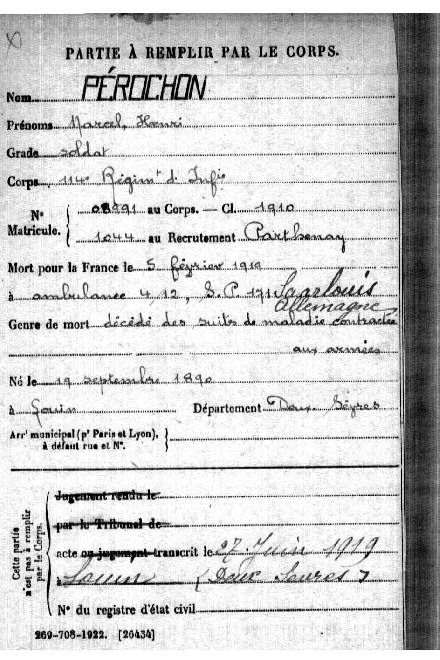 PARTIE À REMPLIR PAR LE CORPS.
Nom PÉROCHON
Prénoms Marcel, Henri
Grade soldat
Corps 114e Régimt d' Infie
No Matricule. { 08991 au Corps. — Cl. 1910
1044 au Recrutement Parthenay
Mort pour la France le 5 février 1919
à ambulance 4/12, S.P. 171 Saarlouis
Allemagne
Genre de mort décédé des suites de maladie contractée
aux armées
Né le 19 septembre 1890
à Louin Département Deux-Sèvres
Arrt municipal (pr Paris et Lyon),
à défaut rue et No.
Cette partie n'est pas à remplir par le Corps.
Jugement rendu le
par le Tribunal de
acte ou jugement transcrit le 27 Juin 1919
à Louin (Deux Sèvres)
No du registre d'état civil
269-708-1922. [26434]